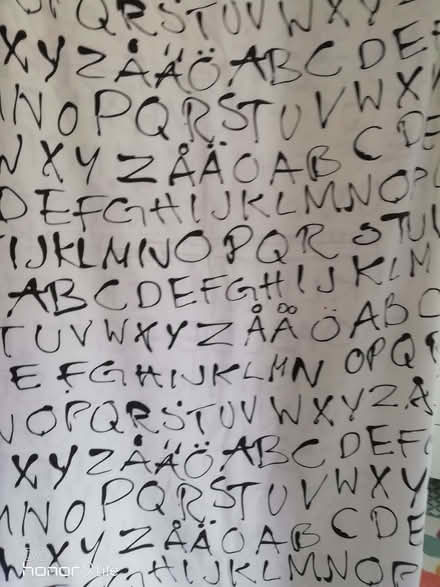 P Q R S T U V W X Y
X Y Z Å Ä Ö A B C D E
N O P Q R S T U V W X
W X Y Z Å Ä Ö A B C D E
D E F G H I J K L M N O P
I J K L M N O P Q R S T U
A B C D E F G H I J K L M
T U V W X Y Z Å Ä Ö A B C
E F G H I J K L M N O P Q
N O P Q R S T U V W X Y Z Å
X Y Z Å Ä Ö A B C D E F G
N O P Q R S T U V W X Y
W X Y Z Å Ä Ö A B C D E
F G H I J K L M N O P
honor